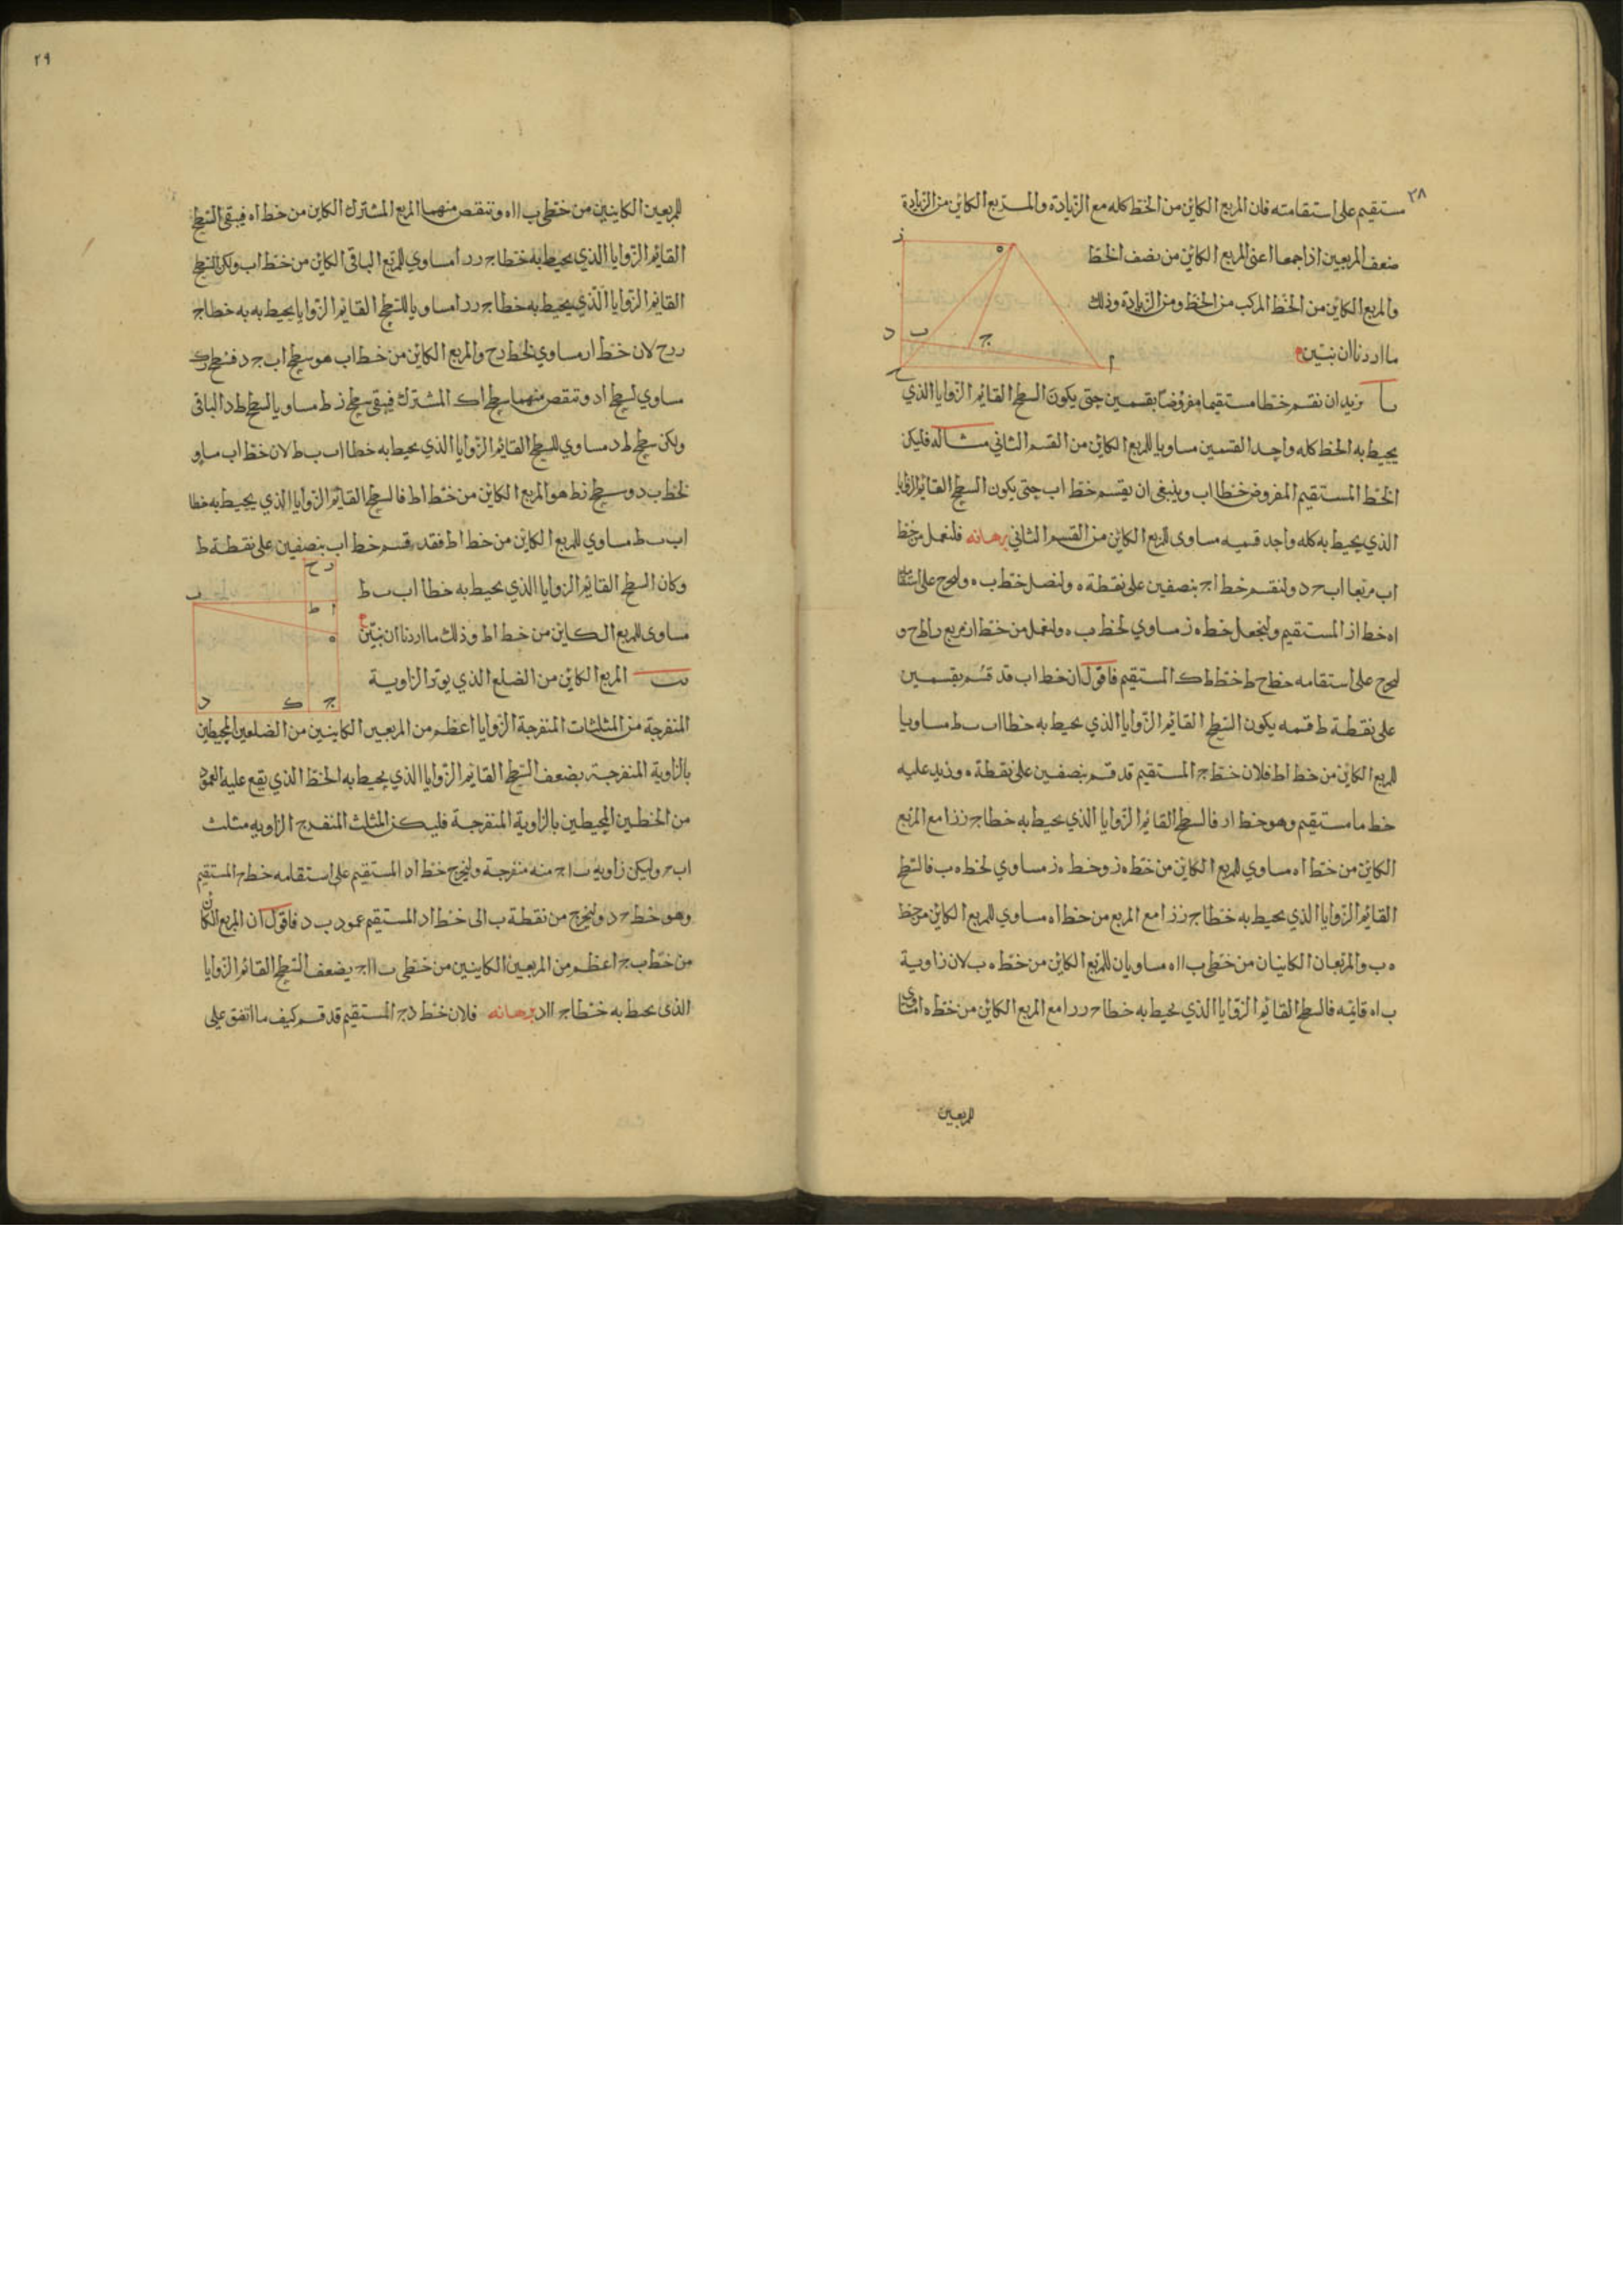 ٣٨
مستقيم على استقامته فان المربع الكاين من الخط كله مع الزيادة والمربع الكاين من الزيادة
ضعف المربعين اذا جمعا اعنى المربع الكاين من نصف الخط
والمربع الكاين من الخط المركب من الخط ومن الزيادة وذلك
ما اردنا ان نبين
ز
ه
د
ب
ج
ا
ح
يا نريد ان نقسم خطا مستقيما مفروضا بقسمين حتى يكون السطح القائم الزوايا الذي
يحيط به الخط كله واحد القسمين مساويا للمربع الكاين من القسم الثاني مثاله فليكن
الخط المستقيم المفروض خط اب وينبغى ان يقسم خط اب حتى يكون السطح القائم الزوايا
الذي يحيط به كله واحد قسميه مساوى للمربع الكاين من القسم الثاني برهانه فلنعمل من خط
اب مربعا اب ح د ولنقسم خط ا ج بنصفين على نقطة ه ولنصل خط ب ه ولنخرج على استقامة
اه خط از المستقيم ولنجعل خط ه ز مساوي لخط ب ه ولنعمل من خط از مربع راطح و
لنخرج على استقامه خط ح ط خط ط ك المستقيم فاقول ان خط اب قد قسم بقسمين
على نقطة ط قسمه يكون السطح القائم الزوايا الذي يحيط به خطا اب ب ط مساويا
للمربع الكاين من خط اط فلان خط ج ا المستقيم قد قسم بنصفين على نقطة ه وزيد عليه
خط ما مستقيم وهو خط ار فالسطح القائم الزوايا الذي يحيط به خطا ج ز ز ا مع المربع
الكاين من خط اه مساوي للمربع الكاين من خط ه ز وخط ه ز مساوي لخط ه ب فالسطح
القائم الزوايا الذي يحيط به خطا ج ز ز ا مع المربع من خط اه مساوي للمربع الكاين من خط
ه ب والمربعان الكاينان من خطى ب ا اه مساويان للمربع الكاين من خط ه ب لان زاوية
ب اه قايمه فالسطح القائم الزوايا الذي يحيط به خطا ح ر ر ا مع المربع الكاين من خط ه ا مساوى
للمربعين
٢٩
للمربعين الكاينين من خطى ب ا اه وتنقص منهما المربع المشترك الكاين من خط اه فيبقى السطح
القائم الزوايا الذي يحيط به خطا ج ر ر ا مساوي للمربع الباقى الكاين من خط اب ولكن السطح
القائم الزوايا الذي يحيط به خطا ج ر ر ا مساويا للسطح القائم الزوايا يحيط به به خطا ج
ر ر ح لان خط ار مساوي لخط رح والمربع الكاين من خط اب هو سطح اب ج د فسطح رك
مساوي لسطح اد وتنقص منهما سطح اك المشترك فيبقى سطح ز ط مساويا لسطح ط د الباقى
ولكن سطح ط د مساوي للسطح القائم الزوايا الذي يحيط به خطا اب ب ط لان خط اب مساو
لخط ب د وسطح زط هو المربع الكاين من خط اط فالسطح القائم الزوايا الذي يحيط به خطا
اب ب ط مساوي للمربع الكاين من خط اط فقد قسم خط اب بنصفين على نقطة ط
وكان السطح القائم الزوايا الذي يحيط به خطا اب ب ط
مساوى للمربع الكاين من خط اط وذلك ما اردنا ان نبين
ر ح
ب
ط
ا
ه
د
ك
ج
يب المربع الكاين من الضلع الذي يوتر الزاوية
المنفرجة من المثلثات المنفرجة الزوايا اعظم من المربعين الكاينين من الضلعين المحيطين
بالزاوية المنفرجة بضعف السطح القائم الزوايا الذي يحيط به الخط الذي يقع عليه العمود
من الخطين المحيطين بالزاوية المنفرجة فليكن المثلث المنفرج الزاويه مثلث
اب ح وليكن زاوية ب ا ج منه منفرجة ولنخرج خط اد المستقيم على استقامه خط ح ا المستقيم
وهو خط ح د ولنخرج من نقطة ب الى خط اد المستقيم عمود ب د فاقول ان المربع الكاين
من خط ب ج اعظم من المربعين الكاينين من خطى ب ا ا ج بضعف السطح القائم الزوايا
الذى يحيط به خطا ج ا اد برهانه فلان خط د ج المستقيم قد قسم كيف ما اتفق على